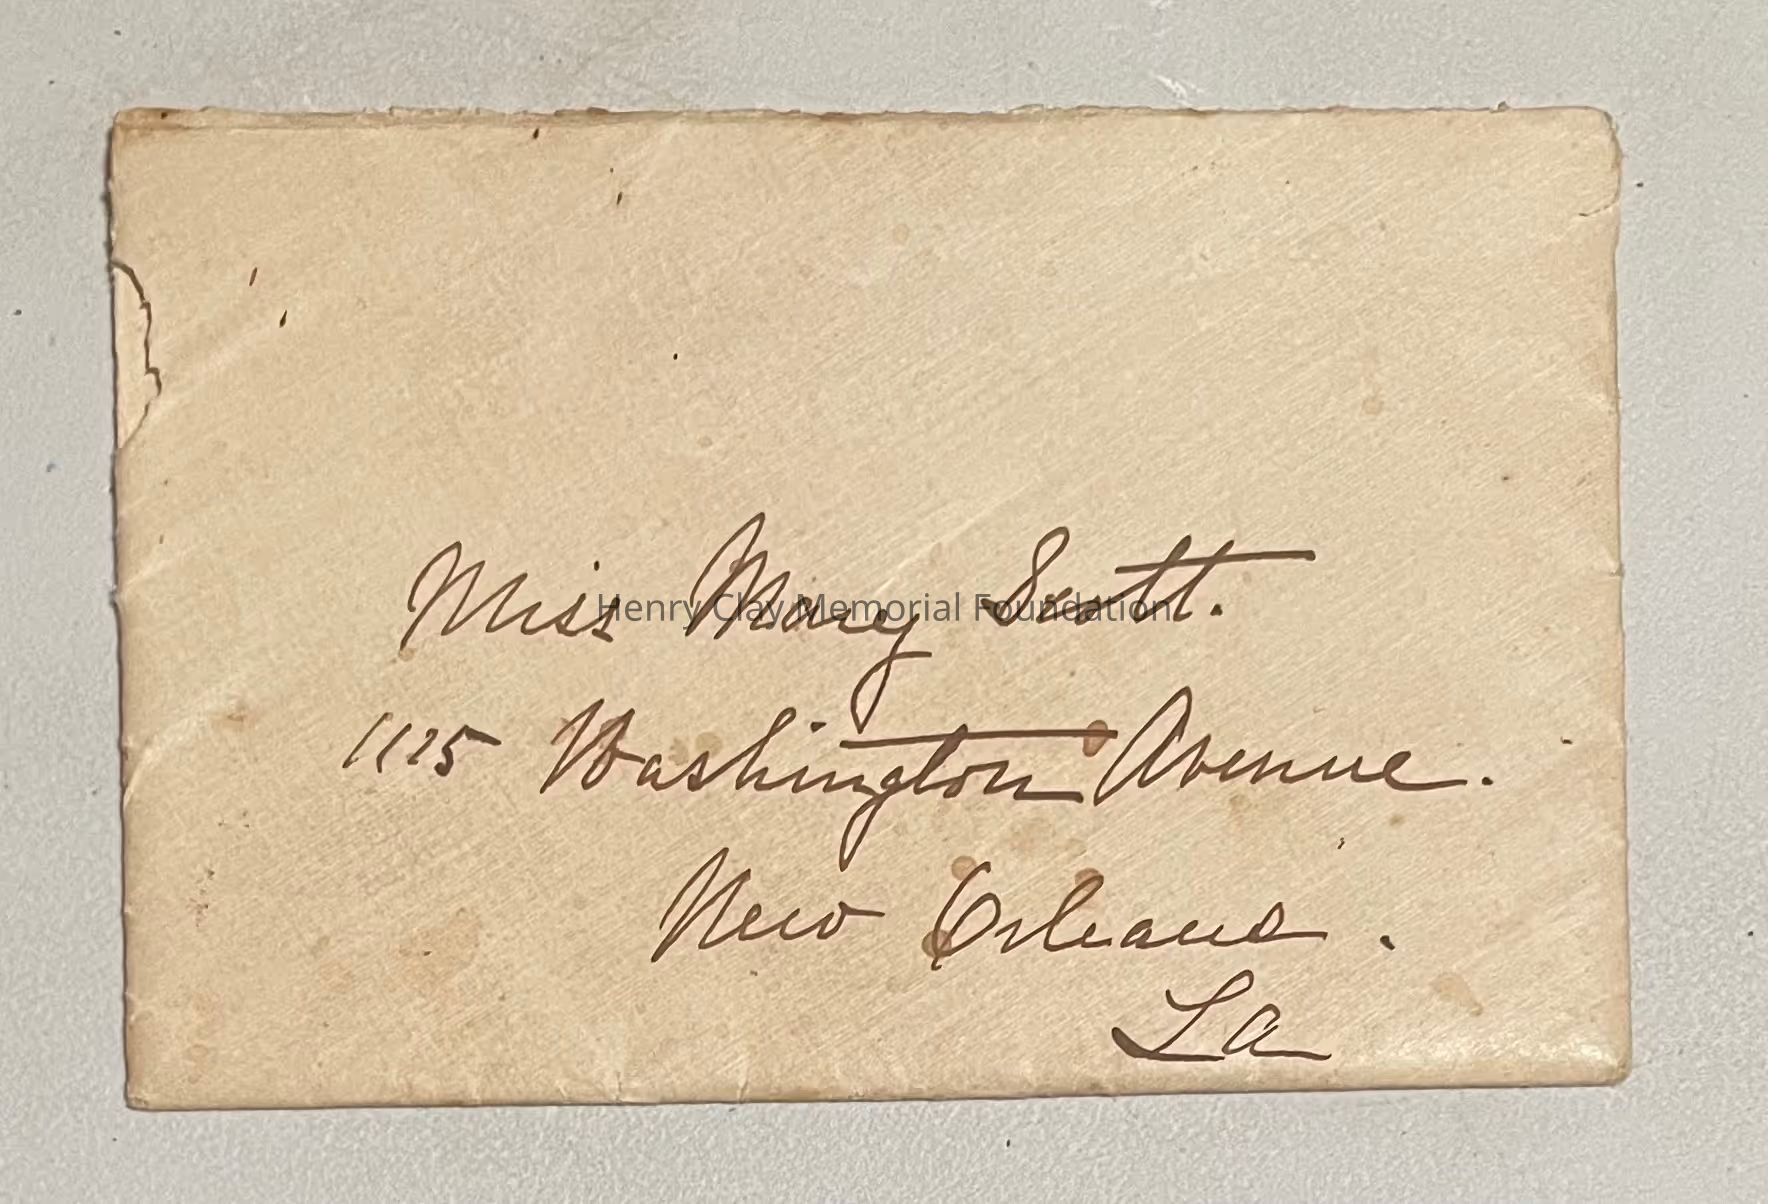 Miss Mary Scott.
Henry Clay Memorial Foundation
1125 Washington Avenue.
New Orleans.
La